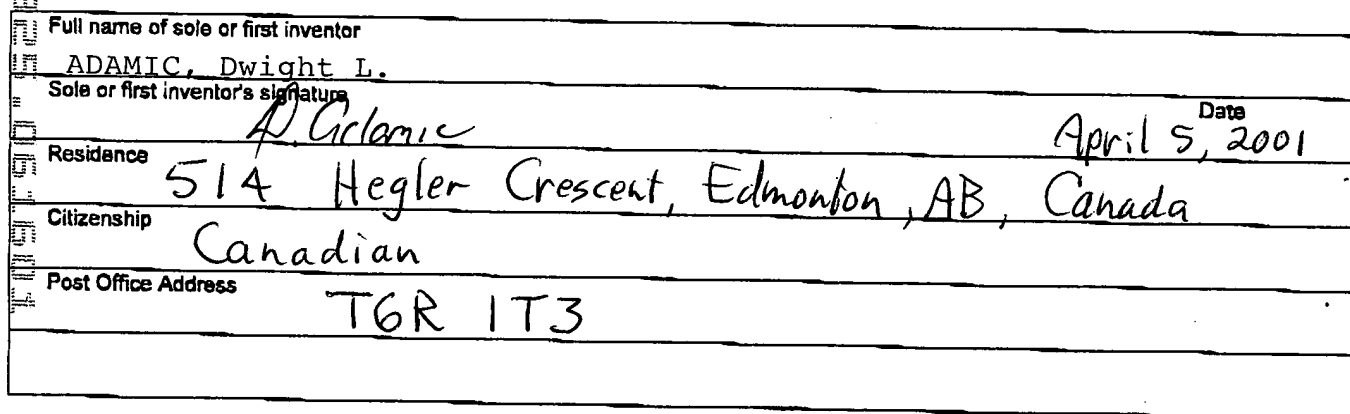 Full name of sole or first inventor
ADAMIC, Dwight L.
Sole or first inventor's signature
D. Adamic
Date
April 5, 2001
Residence
514 Hegler Crescent, Edmonton, AB, Canada
Citizenship
Canadian
Post Office Address
T6R 1T3